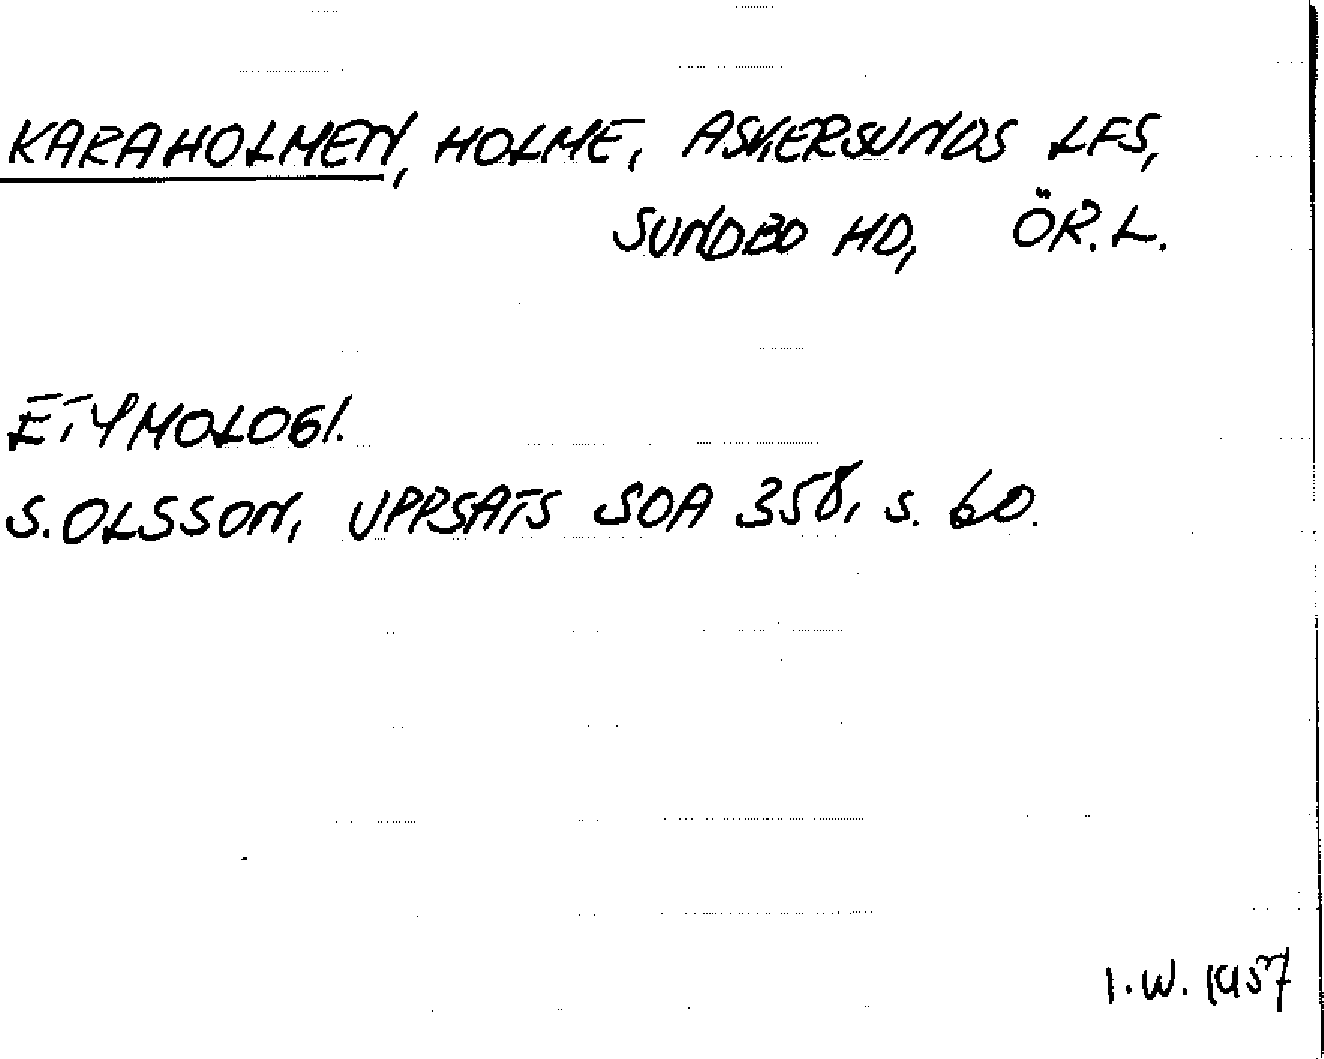 KARAHOLMEN, HOLME, ASKERSUNDS LFS,
SUNDBO HD, ÖR. L.
ETYMOLOGI.
S. OLSSON, UPPSATS SOA 358, s. 60.
I. W. 1957